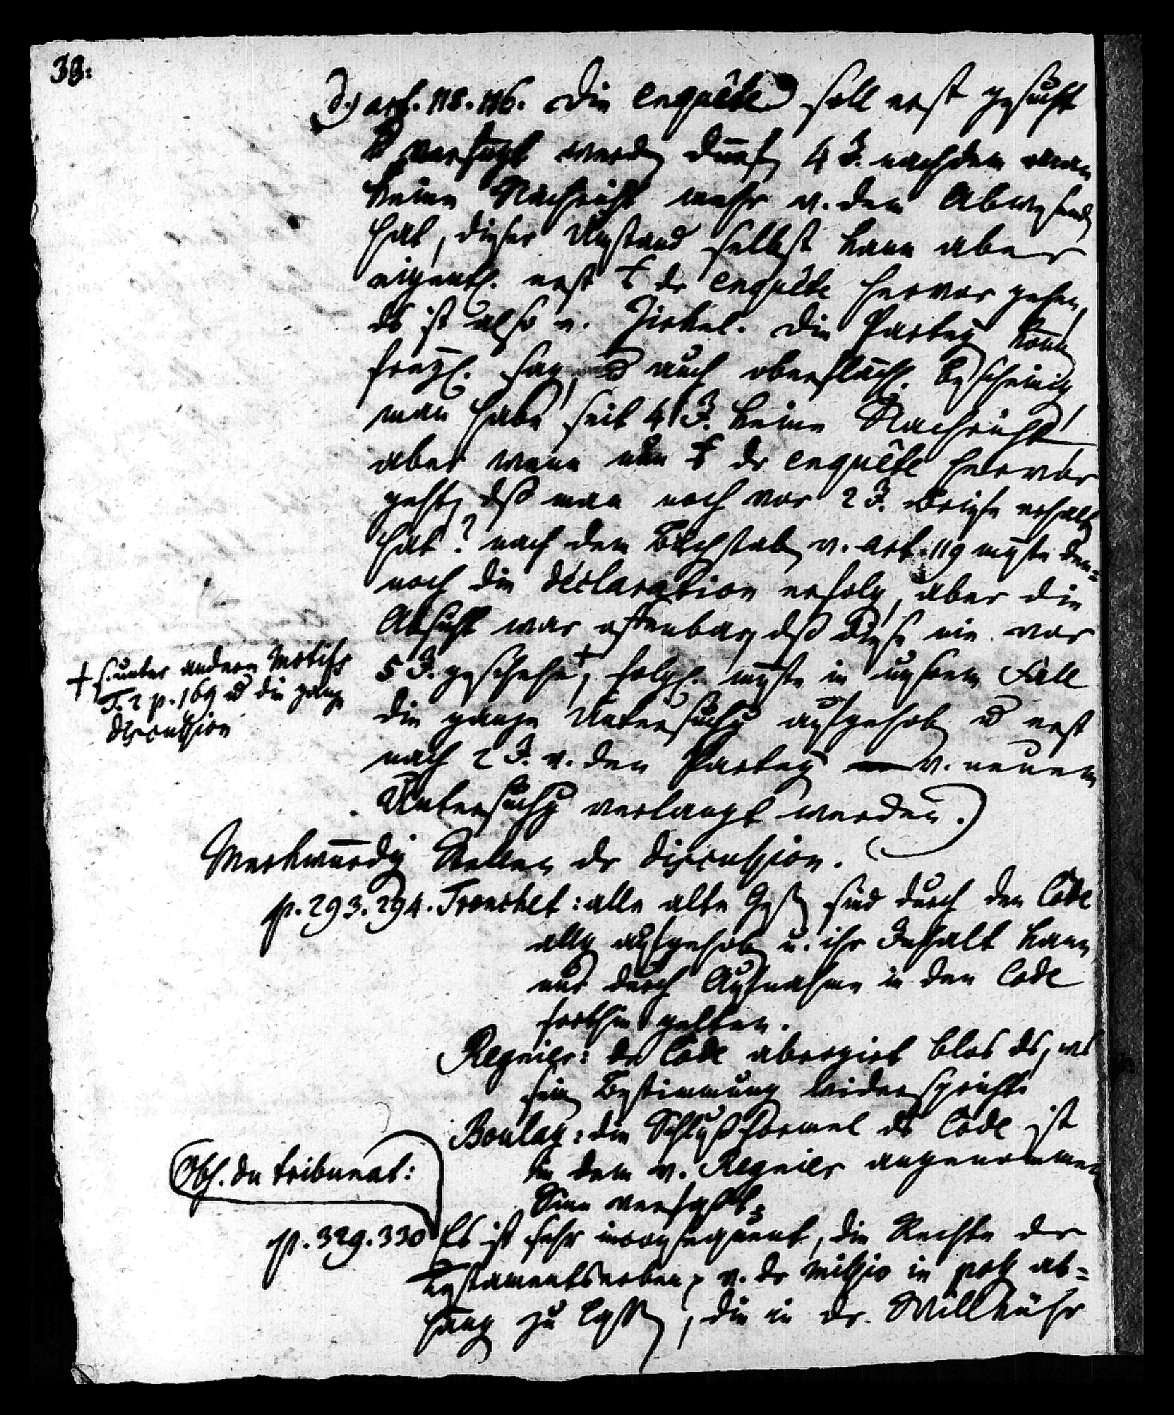 38.
d.) art. 115. 116. die enquête soll erst gesucht
u verfügt werden dürfen 4 J. nachdem man
keine Nachricht mehr v. dem Abwesenden
hat, dieser Umstand selbst kann aber
eigentl. erst + dr enquête hervor gehen,
ds ist also e. Zirkel. die Parteyen können
freyl. sagen, u auch oberflächl. bescheinigen,
man habe seit 4 J. keine Nachricht,
aber wenn nun + dr enquête hervor
geht, dß man noch vor 2 J. Briefe erhalten
hat? nach dem Buchstaben v. art. 119 müßte den=
noch die déclaration erfolgen, aber die
Absicht war offenbar, dß diese nie vor
5 J. geschehe +, folgl. müßte in unsrem Fall
die ganze Untersuchg aufgehoben u erst
nach 2 J. v. den Parteyen v. neuem
Untersuchg verlangt werden.)
+ s. unter andern Motifs
T. 2 p. 169 u die ganze
discussion
Merkwürdige Stellen dr discussion.
p. 293. 294. Tronchet: alle alte Gesetze sind durch den Code
allg aufgehoben u. ihr Inhalt kann
nur durch Aufnahme in den Code
forthin gelten.
Regnier: dr Code abrogirt blos ds, ws
seinen Bestimmungen widerspricht
Boulay: die Schlußformel ds Code ist
in dem v. Regnier angenommenen
Sinn verfaßt.
Obs. du tribunat:
p. 329. 330 Es ist sehr inconsequent, die Rechte der
Testamentserben v. dr missio in poss ab=
hängen zu lassen, die in dr Willkühr